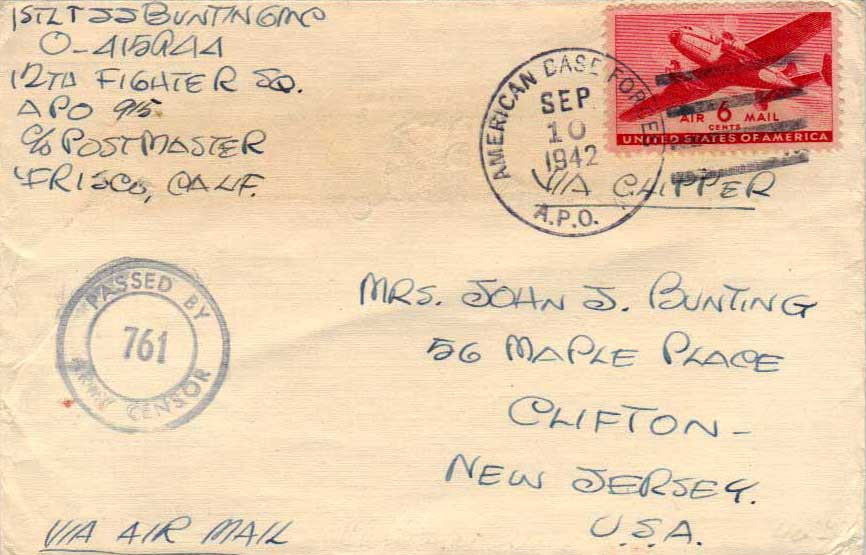 1ST LT JJ BUNTING MC
O-415944
12TH FIGHTER SQ.
APO 915
C/O POSTMASTER
FRISCO, CALIF.
AMERICAN BASE FORCES
SEP
10
1942
A.P.O.
AIR 6 MAIL
CENTS
UNITED STATES OF AMERICA
VIA CLIPPER
PASSED BY
761
ARMY CENSOR
MRS. JOHN J. BUNTING
56 MAPLE PLACE
CLIFTON-
NEW JERSEY.
U.S.A.
VIA AIR MAIL